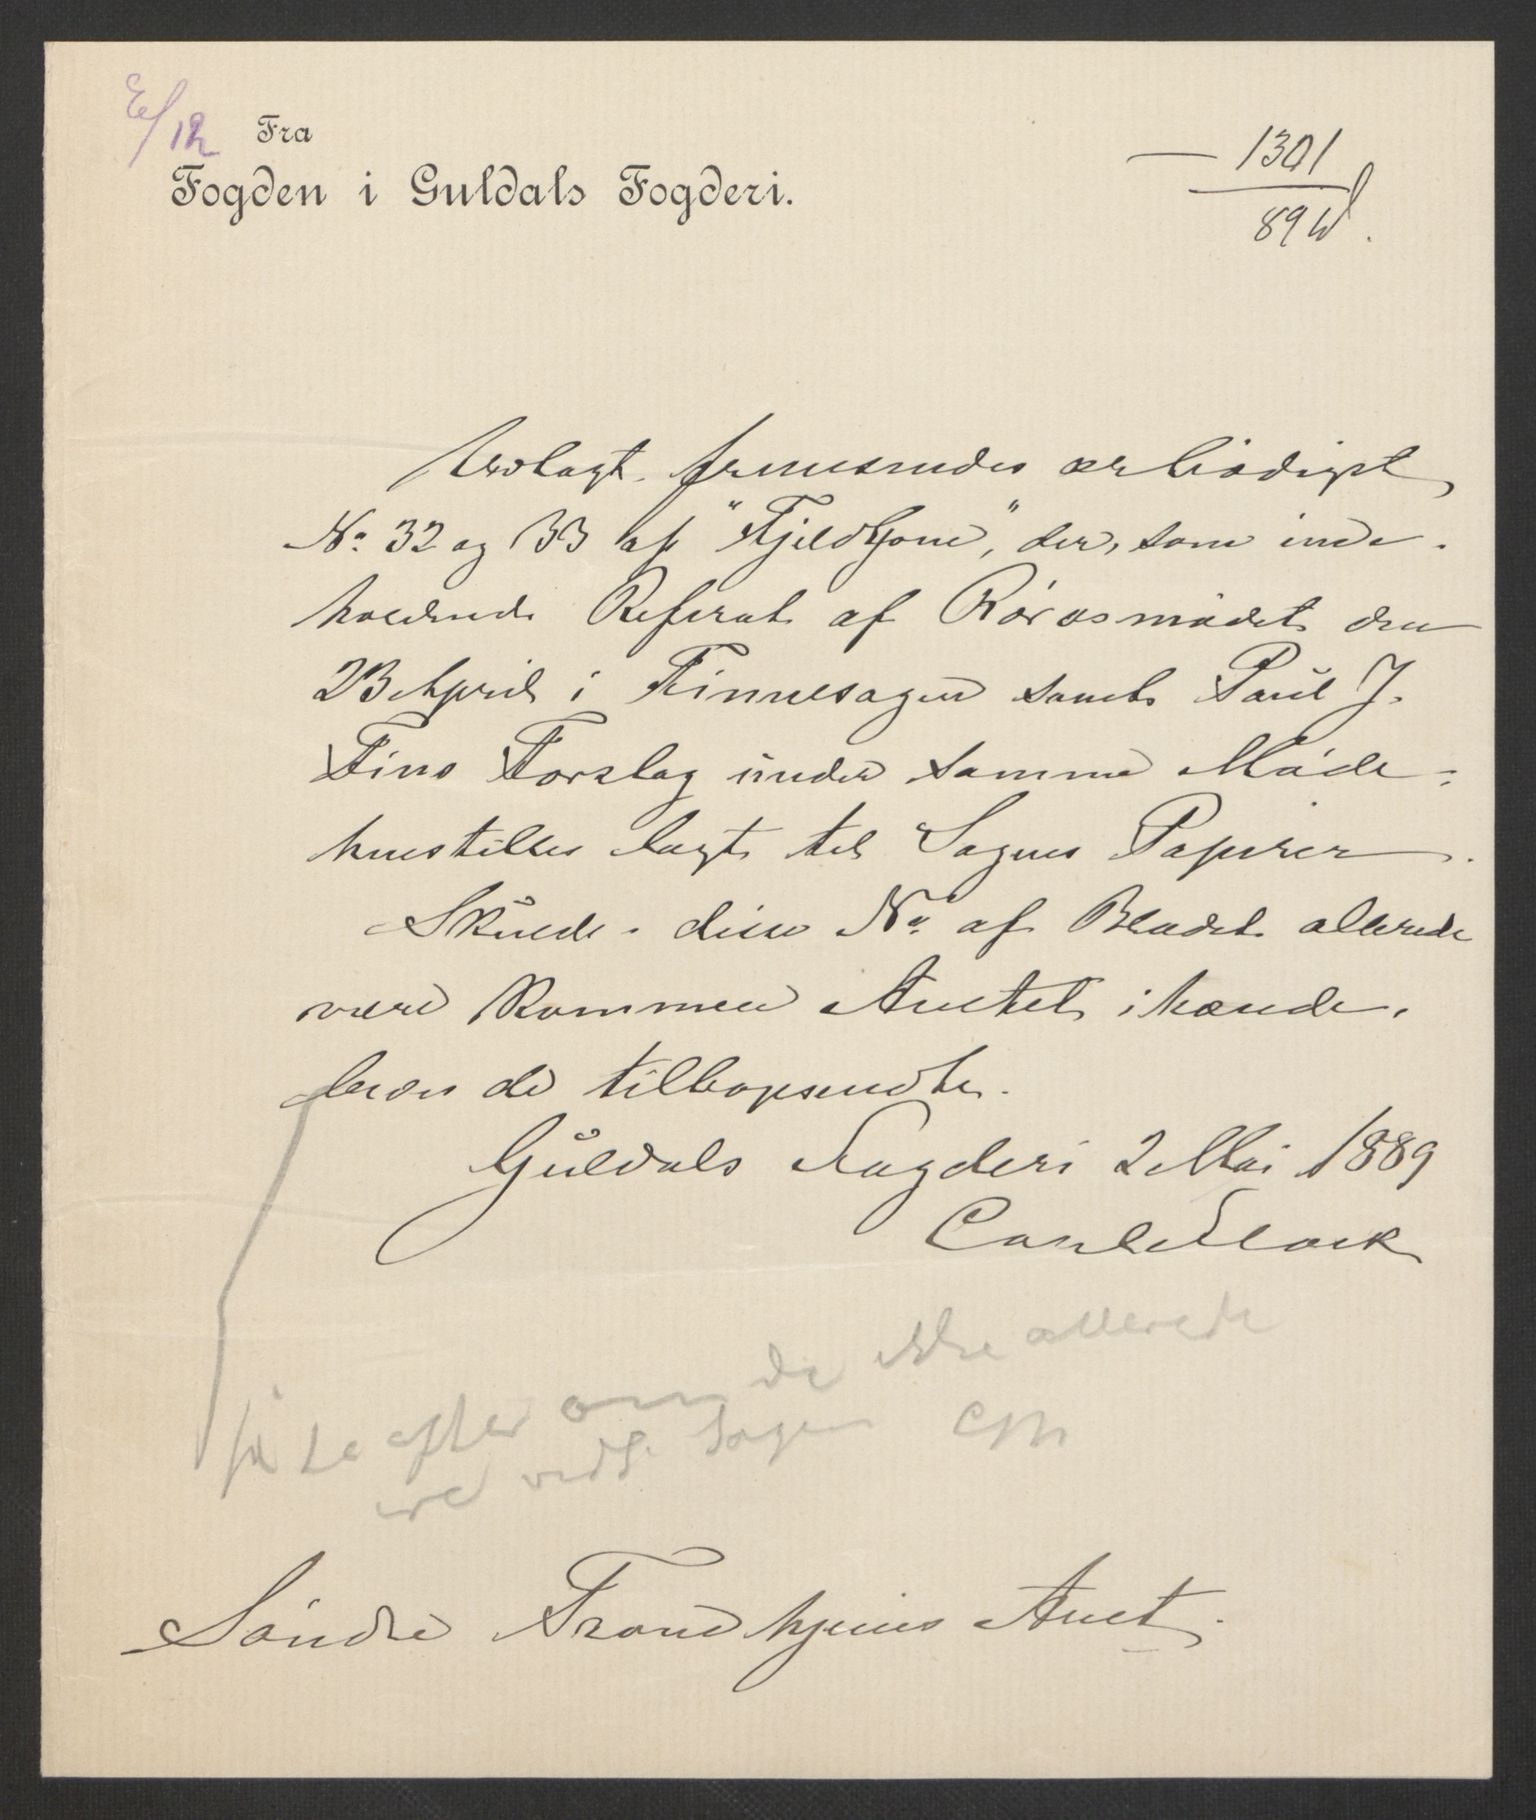 E/12 Fra
Fogden i Guldals Fogderi.
1301
89
Hvolagt fremsendes ærbödigst
No. 32 og 33 af "Fjeldljom", der, som inde-
holdende Referat af Rörosmödet den
23 April i Finnesagen samt Paul J.
Fins Forslag under samme Möde -
henstilles lagt til Sagens Papirer.
Skulde disse No. af Bladet allerede
være kommen Amtet ihænde,
bedes de tilbagesendte.
Guldals Fogderi 2 Mai 1889
Carl Flock
se efter om de ikke allerede
ere vedl. Sagen
Söndre Trondhjems Amt.